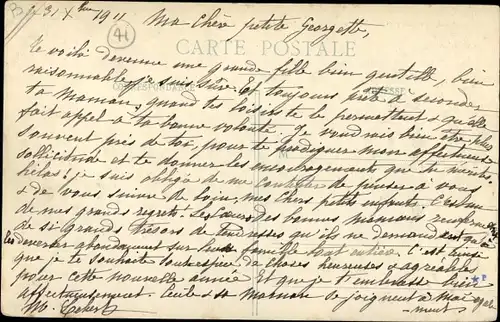 31 Xbre 1911
41
Ma chère petite Georgette,
CARTE POSTALE
te voilà devenue une grande fille bien gentille, bien
raisonnable, je suis sûre. Et toujours prête à seconder
CORRESPONDANCE
ADRESSE
ta Maman, quand tes loisirs te le permettent & qu'elle
fait appel à ta bonne volonté. Je voudrais bien être plus
souvent près de toi, pour te prodiguer mon affectueuse
sollicitude et te donner les encouragements que tu mérites
hélas! je suis obligée de me contenter de penser à vous
& de vous suivre de loin, mes chers petits enfants. C'est un
de mes grands regrets. Les cœurs des bonnes mamans
de si grands trésors de tendresses qu'ils ne demandent qu'à
les déverser abondamment sur leur famille tout entière. C'est ainsi
que je te souhaite toute espèce de choses heureuses & agréables
pour cette nouvelle année Et que je t'embrasse bien
affectueusement. Cécile & sa Maman se joignent à moi
M.